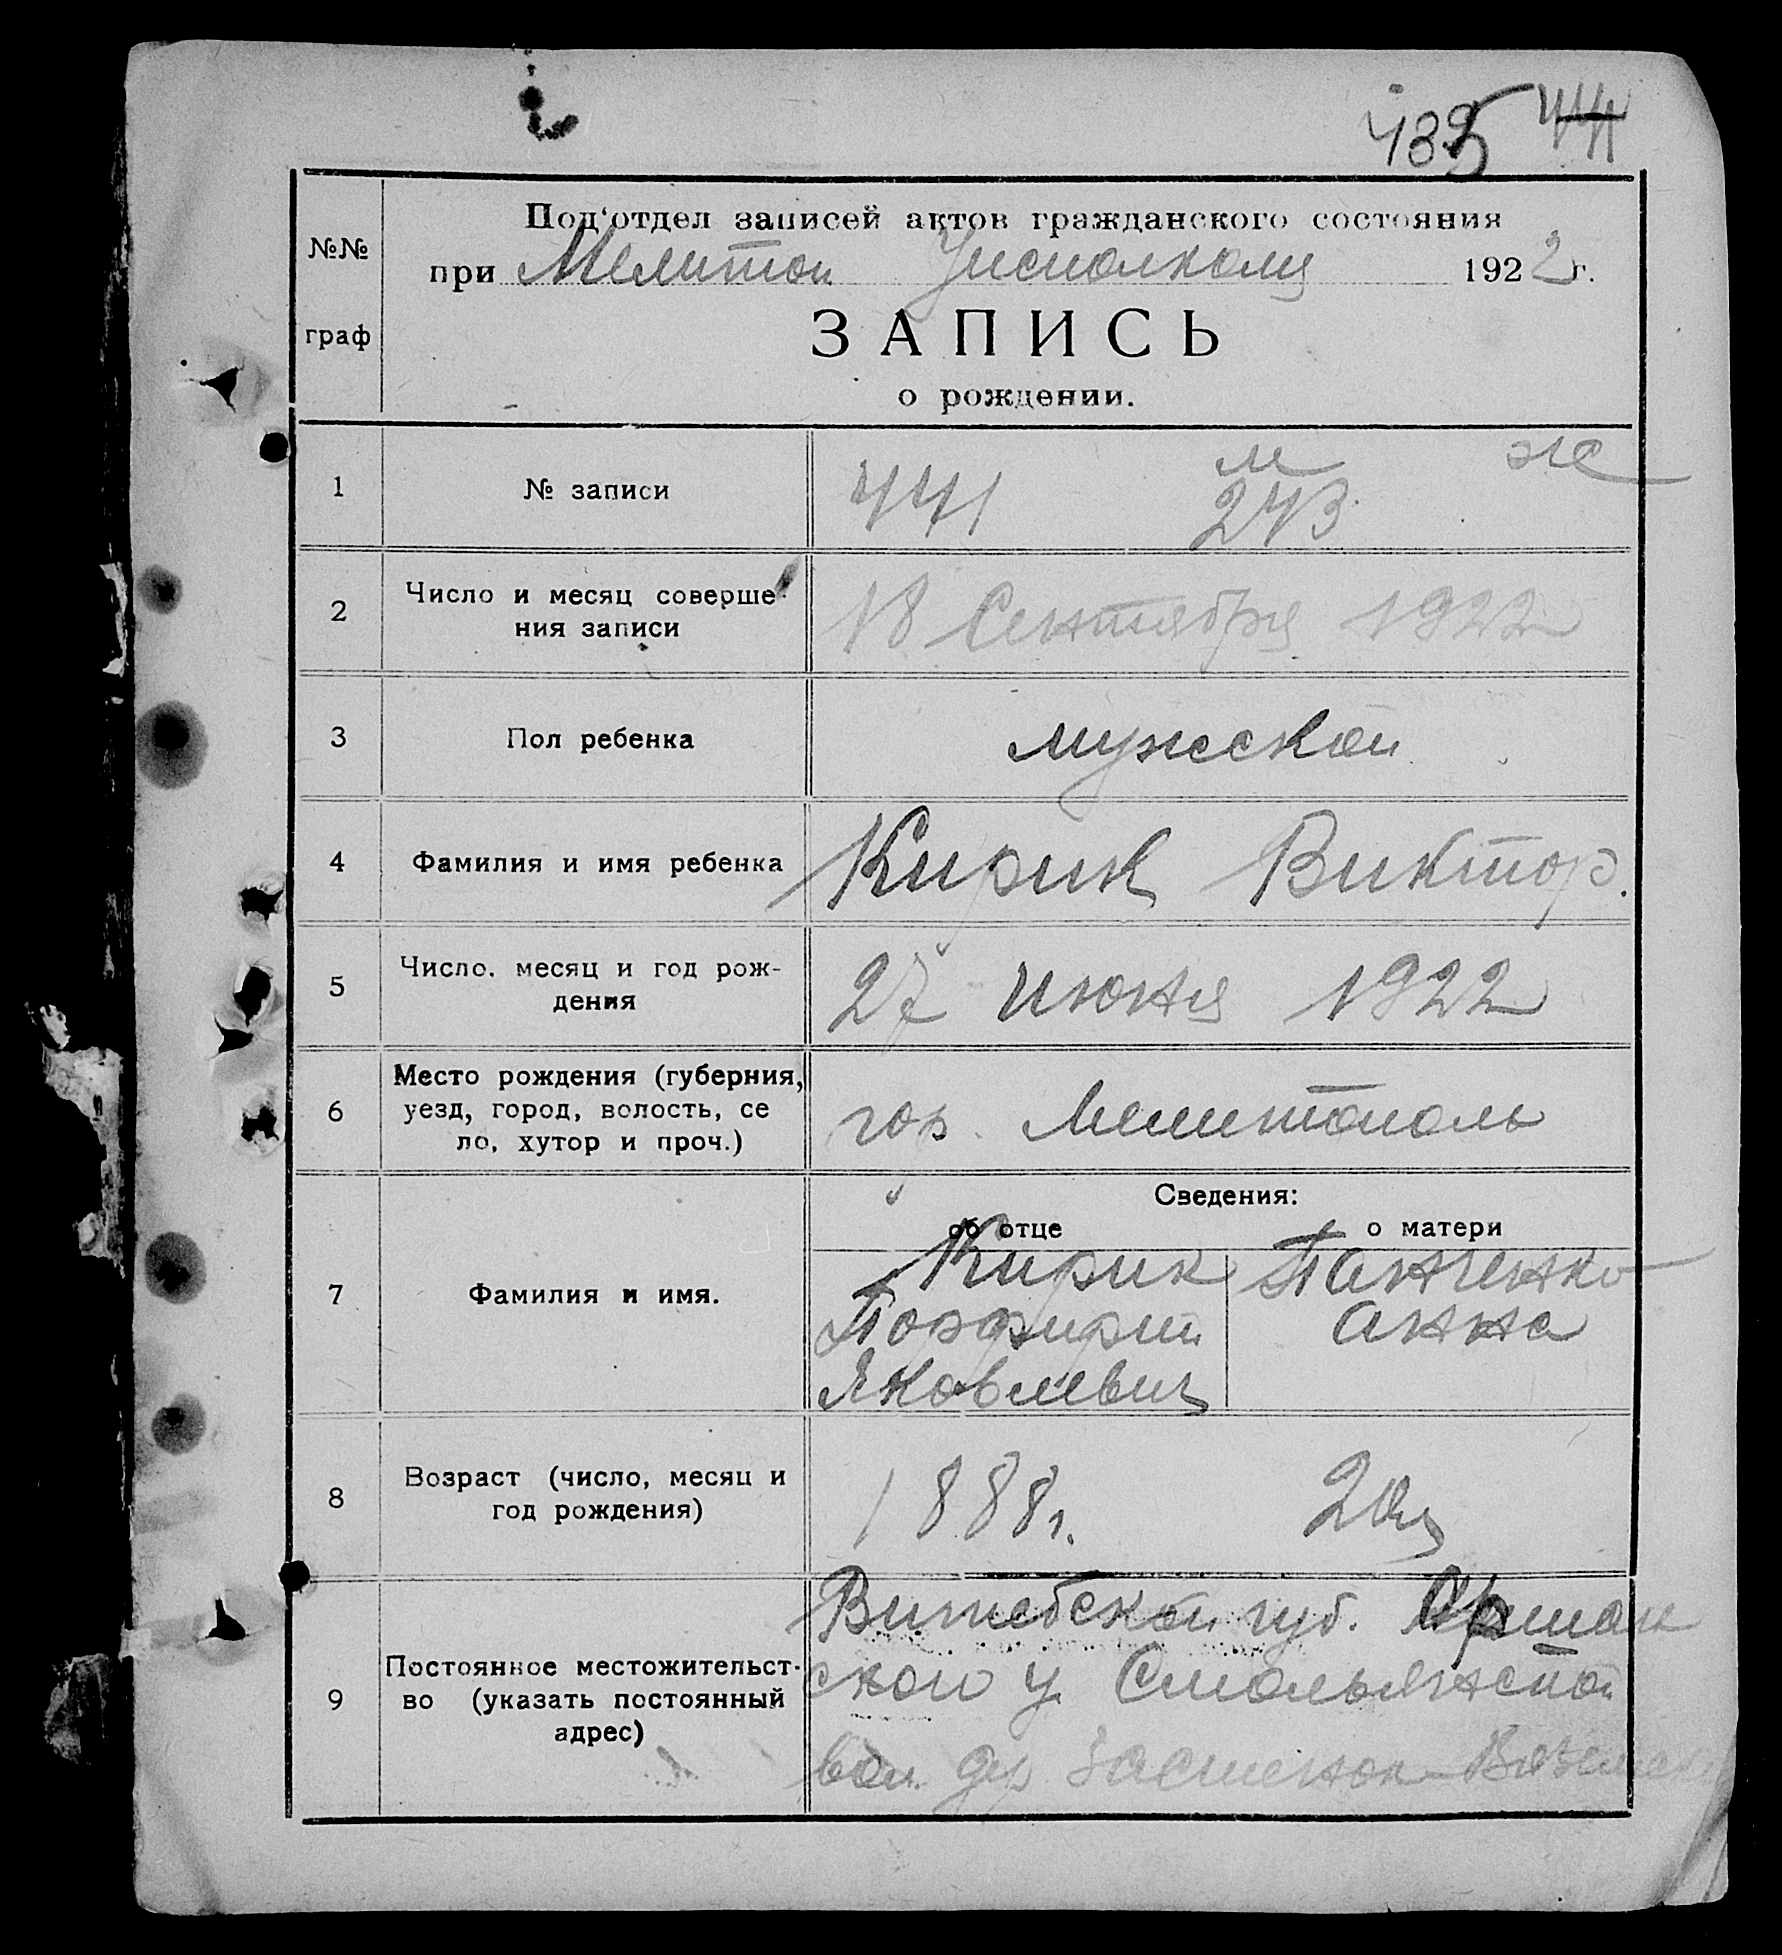 435 441
Под'отдел записей актов гражданского состояния
№№
при Мелитоп Уисполкому 1922 г.
граф
ЗАПИСЬ
о рождении.
м ж
1 № записи 441 243
2 Число и месяц соверше-
ния записи
18 Сентября 1922
3 Пол ребенка мужской
4 Фамилия и имя ребенка Кирик Виктор.
5 Число, месяц и год рож-
дения
27 июня 1922
6 Место рождения (губерния,
уезд, город, волость, се
ло, хутор и проч.)
гор. Мелитополь
Сведения:
об отце о матери
7 Фамилия и имя.
Кирик Панченко
Порфирий Анна
Яковлевич
8 Возраст (число, месяц и
год рождения)
1888г. 20л
9 Постоянное местожительст-
во (указать постоянный
адрес)
Витебской губ. Оршан
ской у Смольянской
вол. др Застенок